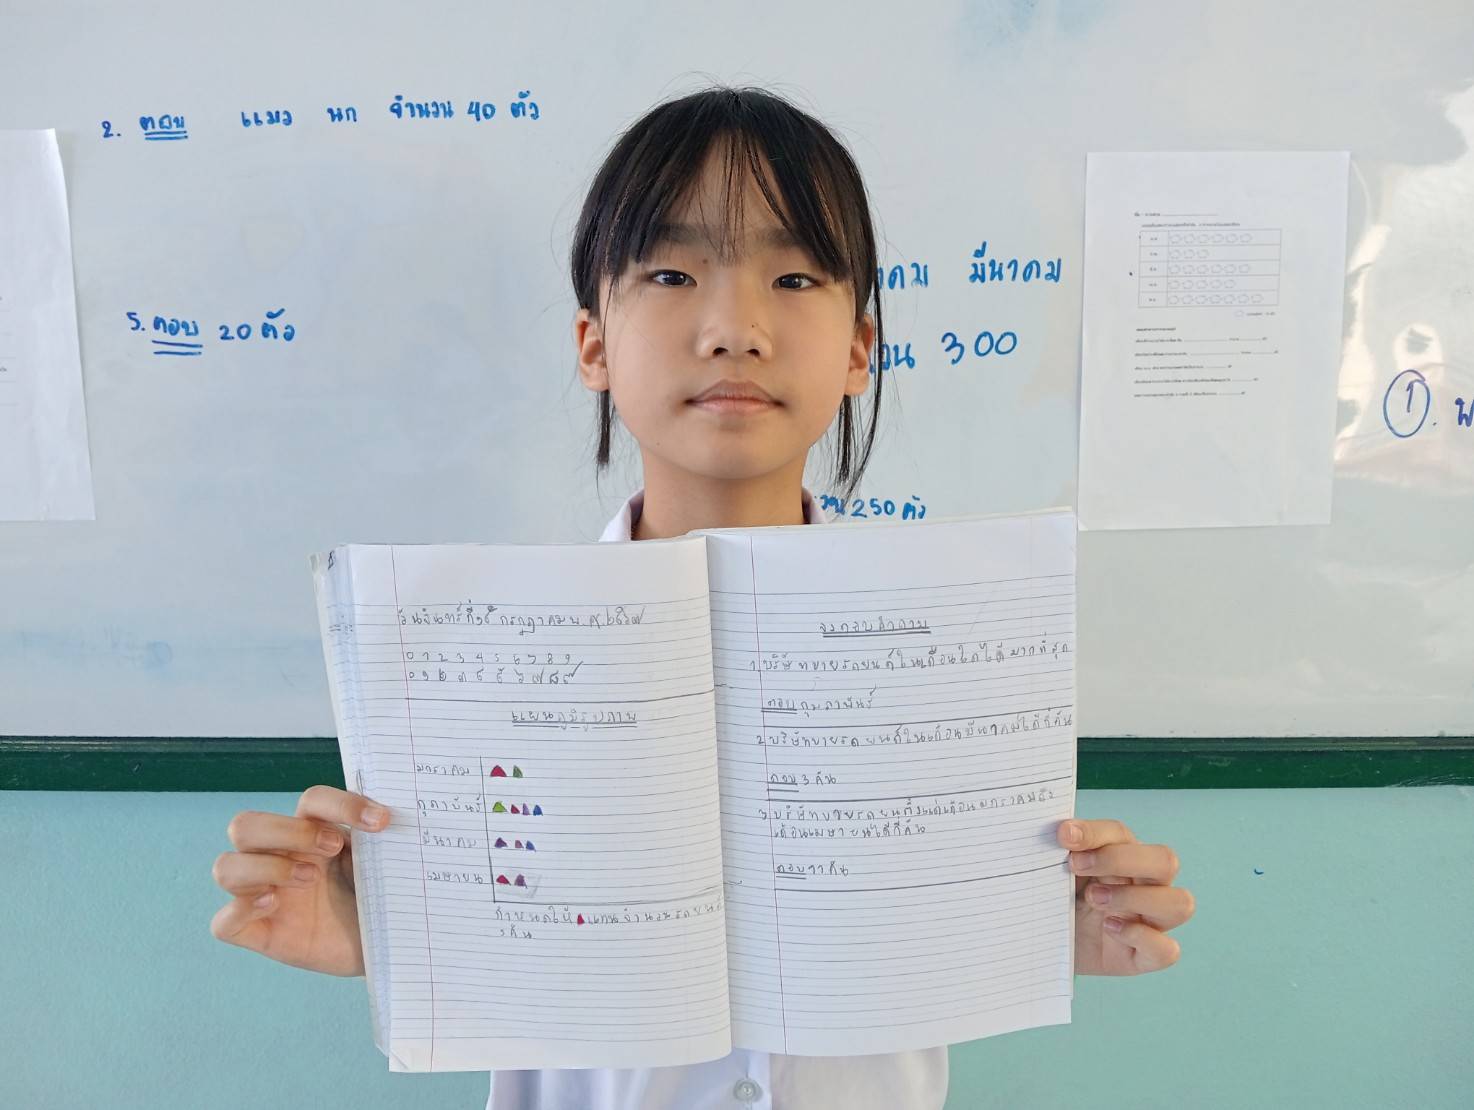 2. ตอบ แมว นก จำนวน 40 ตัว
คม มีนาคม
5. ตอบ 20 ตัว
วน 300
①. พ
วน 250 ตัว
วันจันทร์ที่ ๑๕ กรกฎาคม พ.ศ.๒๕๖๗
0 1 2 3 4 5 6 7 8 9
๐ ๑ ๒ ๓ ๔ ๕ ๖ ๗ ๘ ๙
แผนภูมิรูปภาพ
มกราคม
กุภาพันธ์
มีนาคม
เมษายน
กำหนดให้ แทนจำนวนรถยนต์
1 คัน
จงตอบคำถาม
1 บริษัทขายรถยนต์ในเดือนใดได้มากที่สุด
ตอบ กุมภาพันธ์
2 บริษัทขายรถยนต์ในเดือนมีนาคมได้กี่คัน
ตอบ 3 คัน
3 บริษัทขายรถยนตั้งแต่เดือนมกราคมถึง
เดือนเมษายนได้กี่คัน
ตอบ 11 คัน